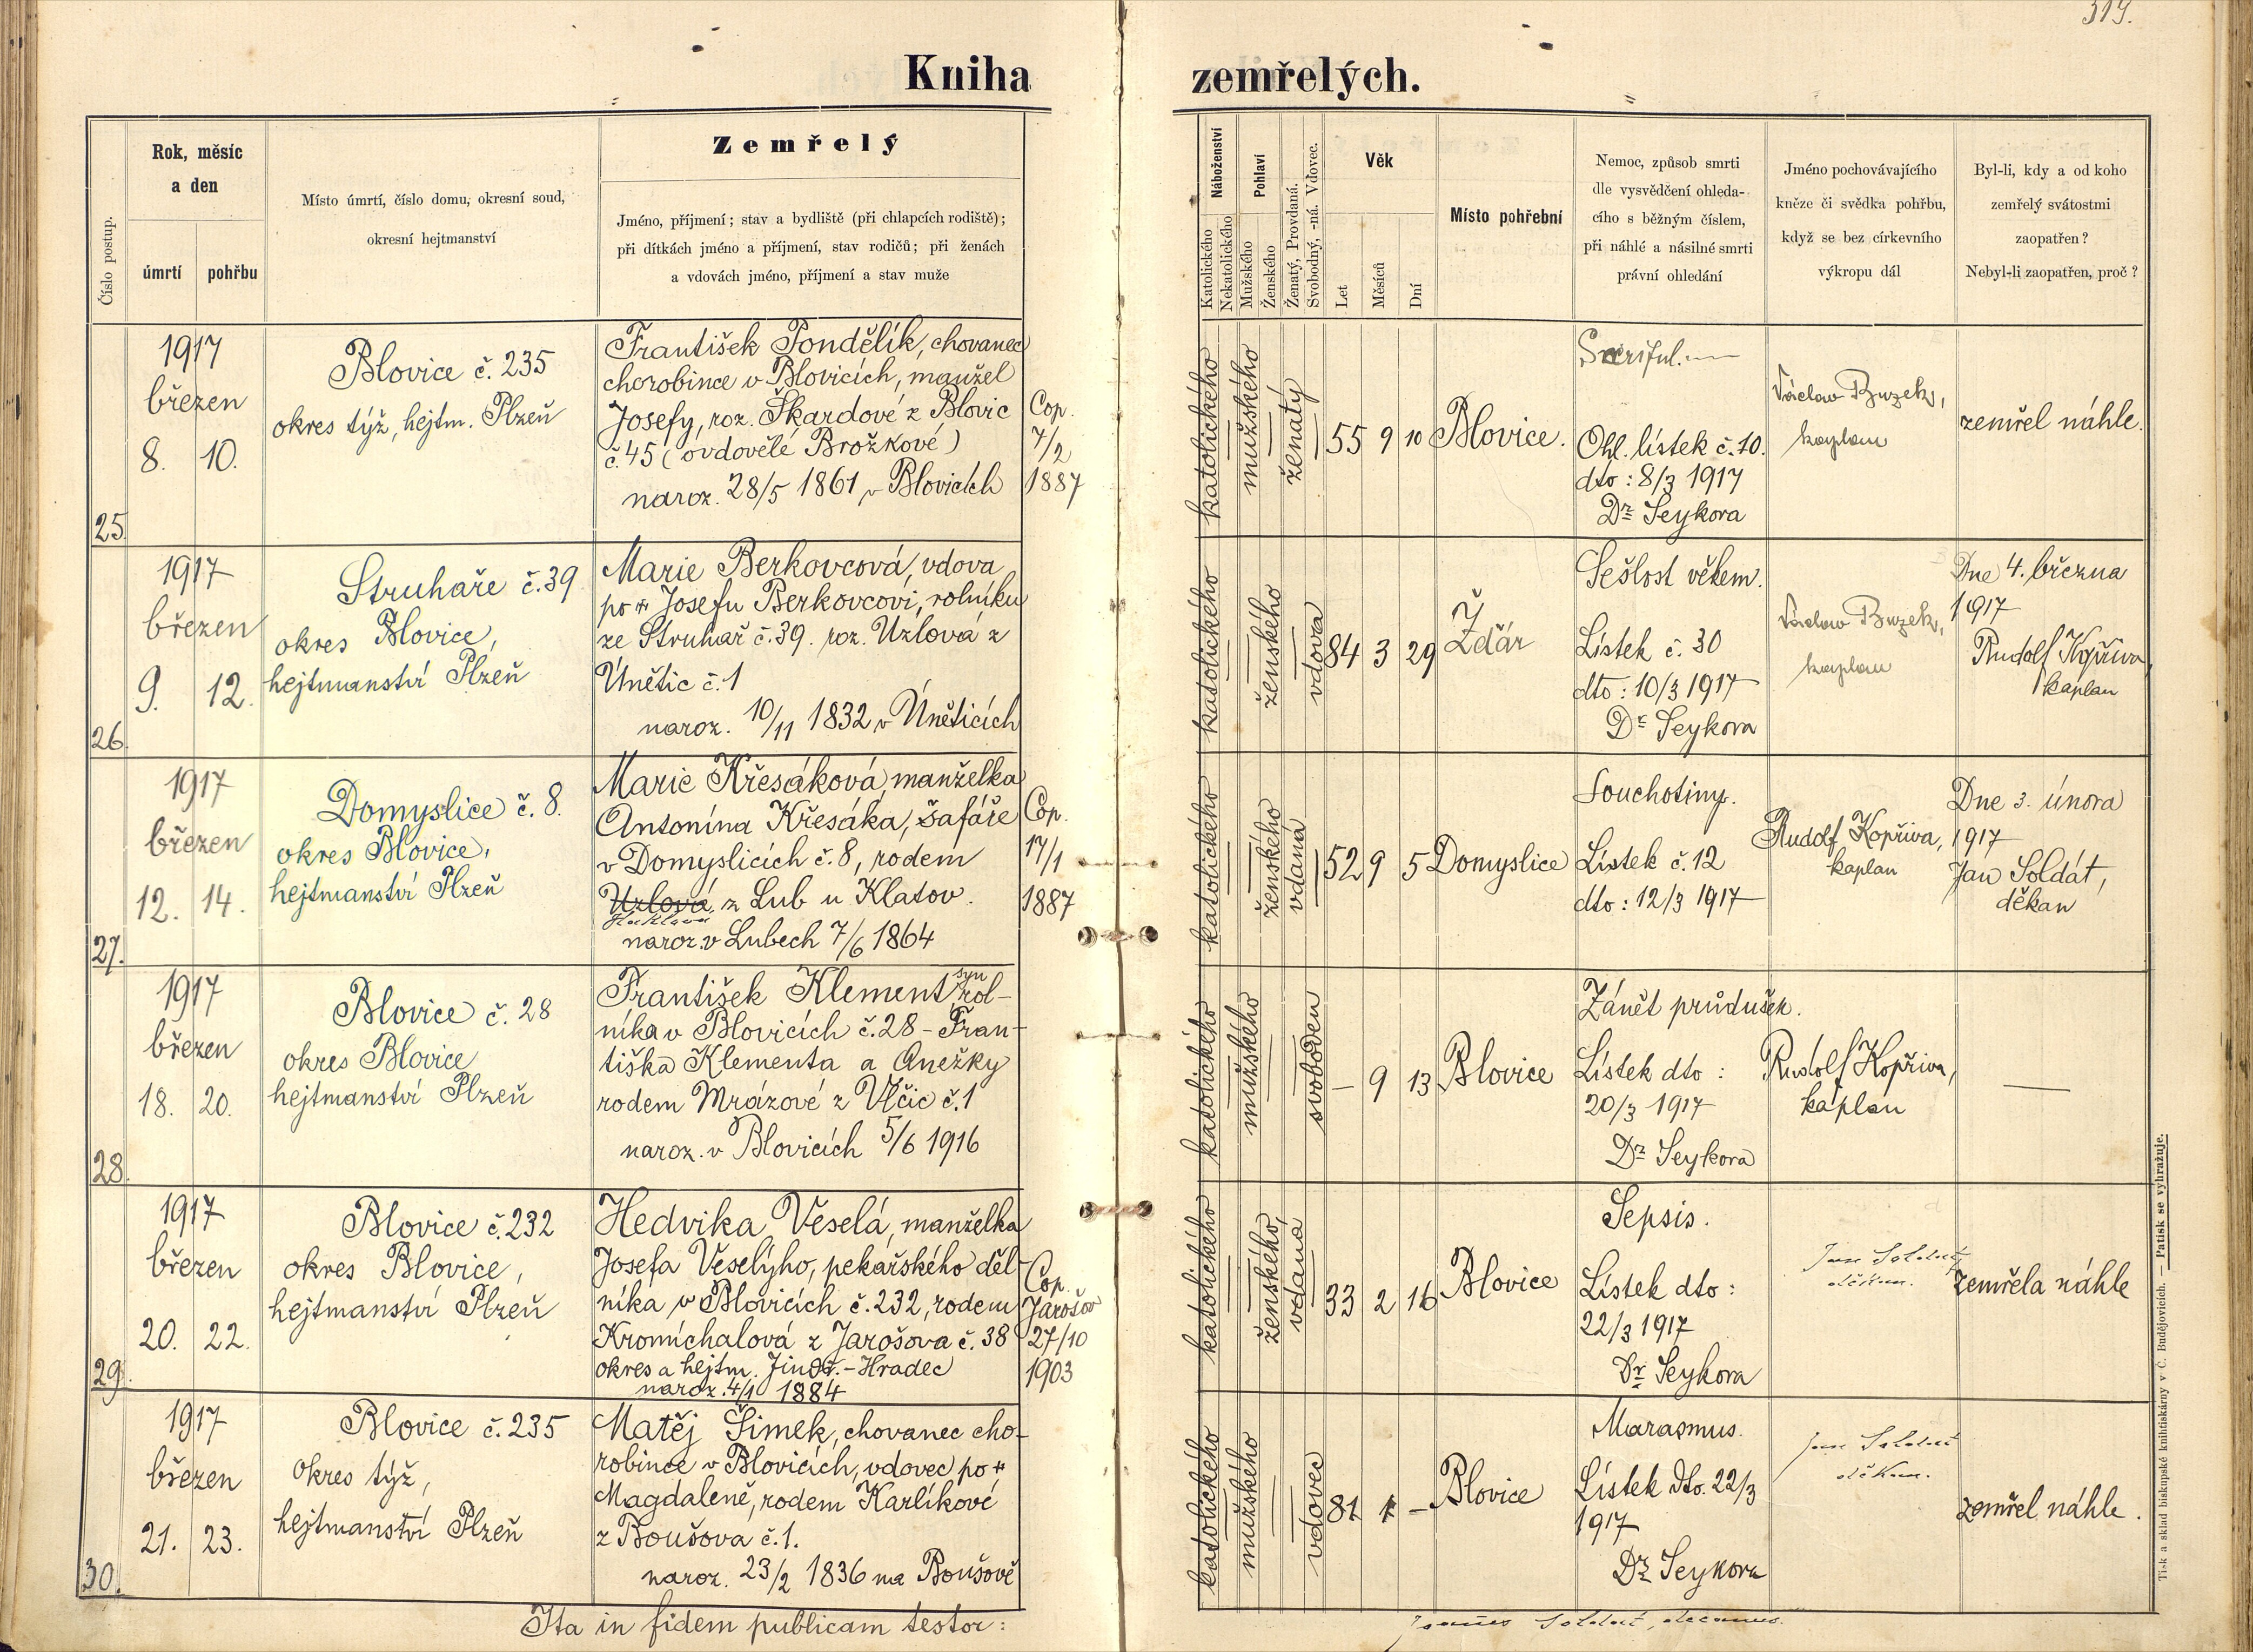 319.
Kniha zemřelých.
Číslo postup.
Rok, měsíc
a den
úmrtí
pohřbu
Místo úmrtí, číslo domu, okresní soud,
okresní hejtmanství
Zemřelý
Jméno, příjmení; stav a bydliště (při chlapcích rodiště);
při dítkách jméno a příjmení, stav rodičů; při ženách
a vdovách jméno, příjmení a stav muže
Náboženství
Katolického
Nekatolického
Pohlaví
Mužského
Ženského
Ženatý, Provdaná.
Svobodný, -ná. Vdovec.
Věk
Let
Měsíců
Dní
Místo pohřební
Nemoc, způsob smrti
dle vysvědčení ohleda-
cího s běžným číslem,
při náhlé a násilné smrti
právní ohledání
Jméno pochovávajícího
kněze či svědka pohřbu,
když se bez církevního
výkropu dál
Byl-li, kdy a od koho
zemřelý svátostmi
zaopatřen?
Nebyl-li zaopatřen, proč?
25.
1917
březen
8. 10.
Blovice č. 235
okres týž, hejtm. Plzeň
František Pondělík, chovanec
chorobince v Blovicích, manžel
Josefy, roz. Škardové z Blovic
č. 45 (ovdovělé Brožkové)
naroz. 28/5 1861 v Blovicích
Cop.
7/2
1887
katolického
mužského
ženatý
55 9 10
Blovice.
Ohl. lístek č. 10.
dto: 8/3 1917
Dr. Seykora
Václav Buzek,
kaplan
zemřel náhle.
26.
1917
březen
9. 12.
Struhaře č. 39
okres Blovice,
hejtmanství Plzeň
Marie Berkovcová, vdova
po + Josefu Berkovcovi, rolníku
ze Struhař č. 39. roz. Uzlová z
Únětic č. 1
naroz. 10/11 1832 v Úněticích
katolického
ženského
vdova
84 3 29
Ždár
Sešlost věkem.
Lístek č. 30
dto: 10/3 1917
Dr. Seykora
Václav Buzek,
kaplan
Dne 4. března
1917
Rudolf Kopřiva,
kaplan
27.
1917
březen
12. 14.
Domyslice č. 8.
okres Blovice,
hejtmanství Plzeň
Marie Křesáková, manželka
Antonína Křesáka, šafáře
v Domyslicích č. 8, rodem
Uzlová, z Lub u Klatov.
naroz. v Lubech 7/6 1864
Cop.
17/1
1887
katolického
ženského
vdaná
52 9 5
Domyslice
Souchotiny.
Lístek č. 12
dto: 12/3 1917
Rudolf Kopřiva,
kaplan
Dne 3. února
1917
Jan Soldát,
děkan
28.
1917
březen
18. 20.
Blovice č. 28
okres Blovice
hejtmanství Plzeň
František Klement syn rol-
níka v Blovicích č. 28 - Fran-
tiška Klementa a Anežky
rodem Mrázové z Vlčic č. 1
naroz. v Blovicích 5/6 1916
katolického
mužského
svoboden
— 9 13
Blovice
Zánět průdušek.
Lístek dto:
20/3 1917
Dr. Seykora
Rudolf Kopřiva,
kaplan
—
29.
1917
březen
20. 22.
Blovice č. 232
okres Blovice,
hejtmanství Plzeň
Hedvika Veselá, manželka
Josefa Veselýho, pekařského děl-
níka v Blovicích č. 232, rodem
Kromichalová z Jarošova č. 38
okres a hejtm. Jindř.-Hradec
naroz. 4/1 1884
Cop.
Jarošov
27/10
1903
katolického
ženského
vdaná
33 2 16
Blovice
Sepsis.
Lístek dto:
22/3 1917
Dr. Seykora
Jan Soldát,
děkan.
zemřela náhle
30.
1917
březen
21. 23.
Blovice č. 235
okres týž,
hejtmanství Plzeň
Matěj Šimek, chovanec cho-
robince v Blovicích, vdovec po +
Magdaleně, rodem Karlíkové
z Boušova č. 1.
naroz. 23/2 1836 na Boušově
katolického
mužského
vdovec
81 1 —
Blovice
Marasmus.
Lístek dto. 22/3
1917
Dr. Seykora
Jan Soldát
děkan.
zemřel náhle.
Ita in fidem publicam testor:
Joannes Soldát, decanus.
Tisk a sklad biskupské knihtiskárny v Č. Budějovicích. — Patisk se vyhražuje.